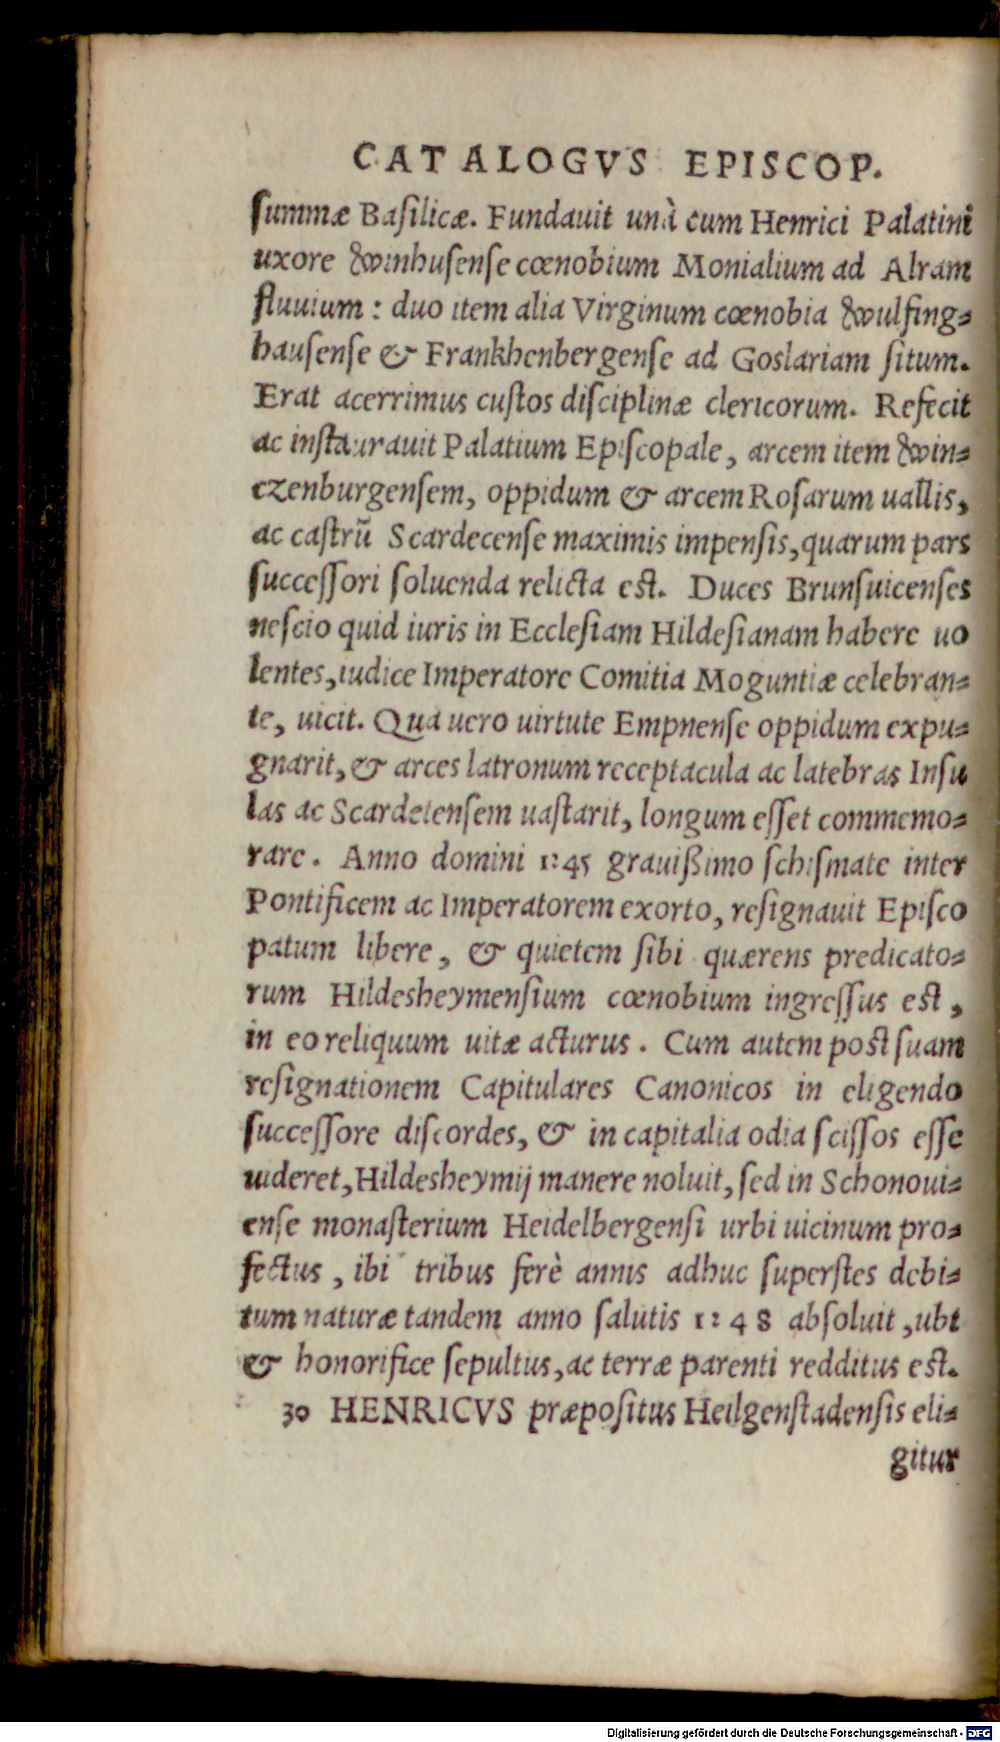 CATALOGVS EPISCOP.
ſummæ Baſilicæ. Fundauit unà cum Henrici Palatini
uxore Winhuſenſe cœnobium Monialium ad Alram
fluuium : duo item alia Virginum cœnobia Wulfing⸗
hauſenſe & Frankhenbergenſe ad Goslariam ſitum.
Erat acerrimus cuſtos diſciplinæ clericorum. Refecit
ac inſtaurauit Palatium Epiſcopale, arcem item Win⸗
czenburgenſem, oppidum & arcem Roſarum uallis,
ac caſtrũ Scardecenſe maximis impenſis, quarum pars
ſucceſſori ſoluenda relicta eſt. Duces Brunſuicenſes
neſcio quid iuris in Eccleſiam Hildeſianam habere uo
lentes, iudice Imperatore Comitia Moguntiæ celebran⸗
te, uicit. Qua uero uirtute Empnenſe oppidum expu⸗
gnarit, & arces latronum receptacula ac latebras Inſu
las ac Scardetenſem uaſtarit, longum eſſet commemo⸗
rare. Anno domini 1245 grauißimo ſchiſmate inter
Pontificem ac Imperatorem exorto, reſignauit Epiſco
patum libere, & quietem ſibi quærens predicato⸗
rum Hildesheymenſium cœnobium ingreſſus eſt,
in eo reliquum uitæ acturus. Cum autem poſt ſuam
reſignationem Capitulares Canonicos in eligendo
ſucceſſore diſcordes, & in capitalia odia ſciſſos eſſe
uideret, Hildesheymij manere noluit, ſed in Schonoui⸗
enſe monaſterium Heidelbergenſi urbi uicinum pro⸗
fectus, ibi tribus ferè annis adhuc ſuperſtes debi⸗
tum naturæ tandem anno ſalutis 1248 abſoluit, ubi
& honorifice ſepultus, ac terræ parenti redditus eſt.
30 HENRICVS præpoſitus Heilgenſtadenſis eli⸗
gitur
Digitalisierung gefördert durch die Deutsche Forschungsgemeinschaft - DFG